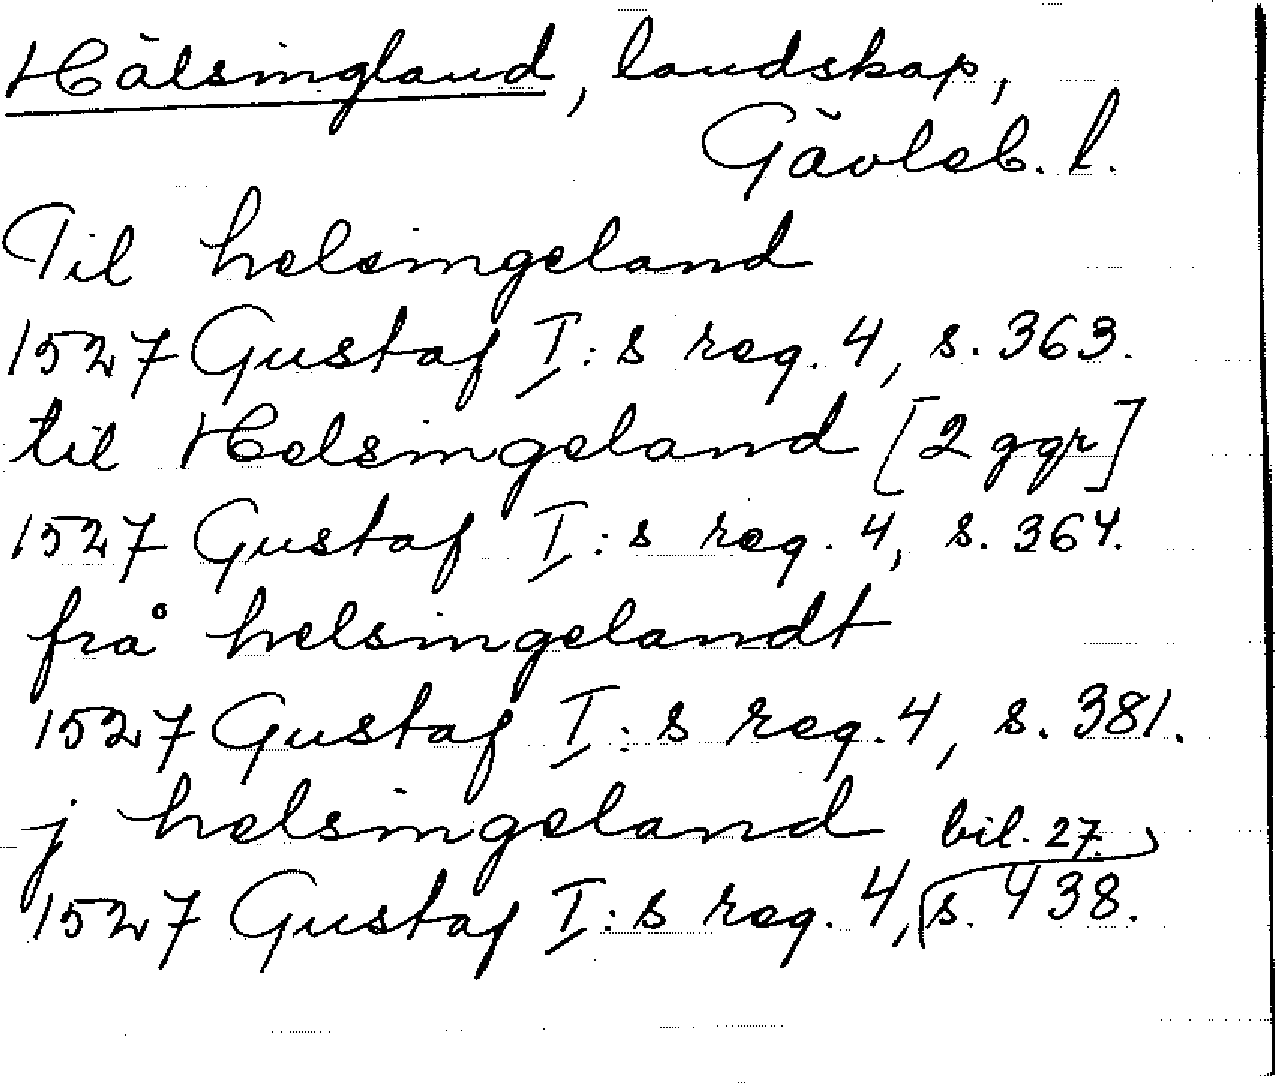 Hälsingland, landskap,
Gävleb. l.
Til helsingeland
1527 Gustaf I:s reg. 4, s. 363.
til Helsingeland [2 ggr]
1527 Gustaf I:s reg. 4, s. 364.
frå helsingelandt
1527 Gustaf I:s reg. 4, s. 381.
j helsingeland
1527 Gustaf I:s reg. 4, bil. 27, s. 438.